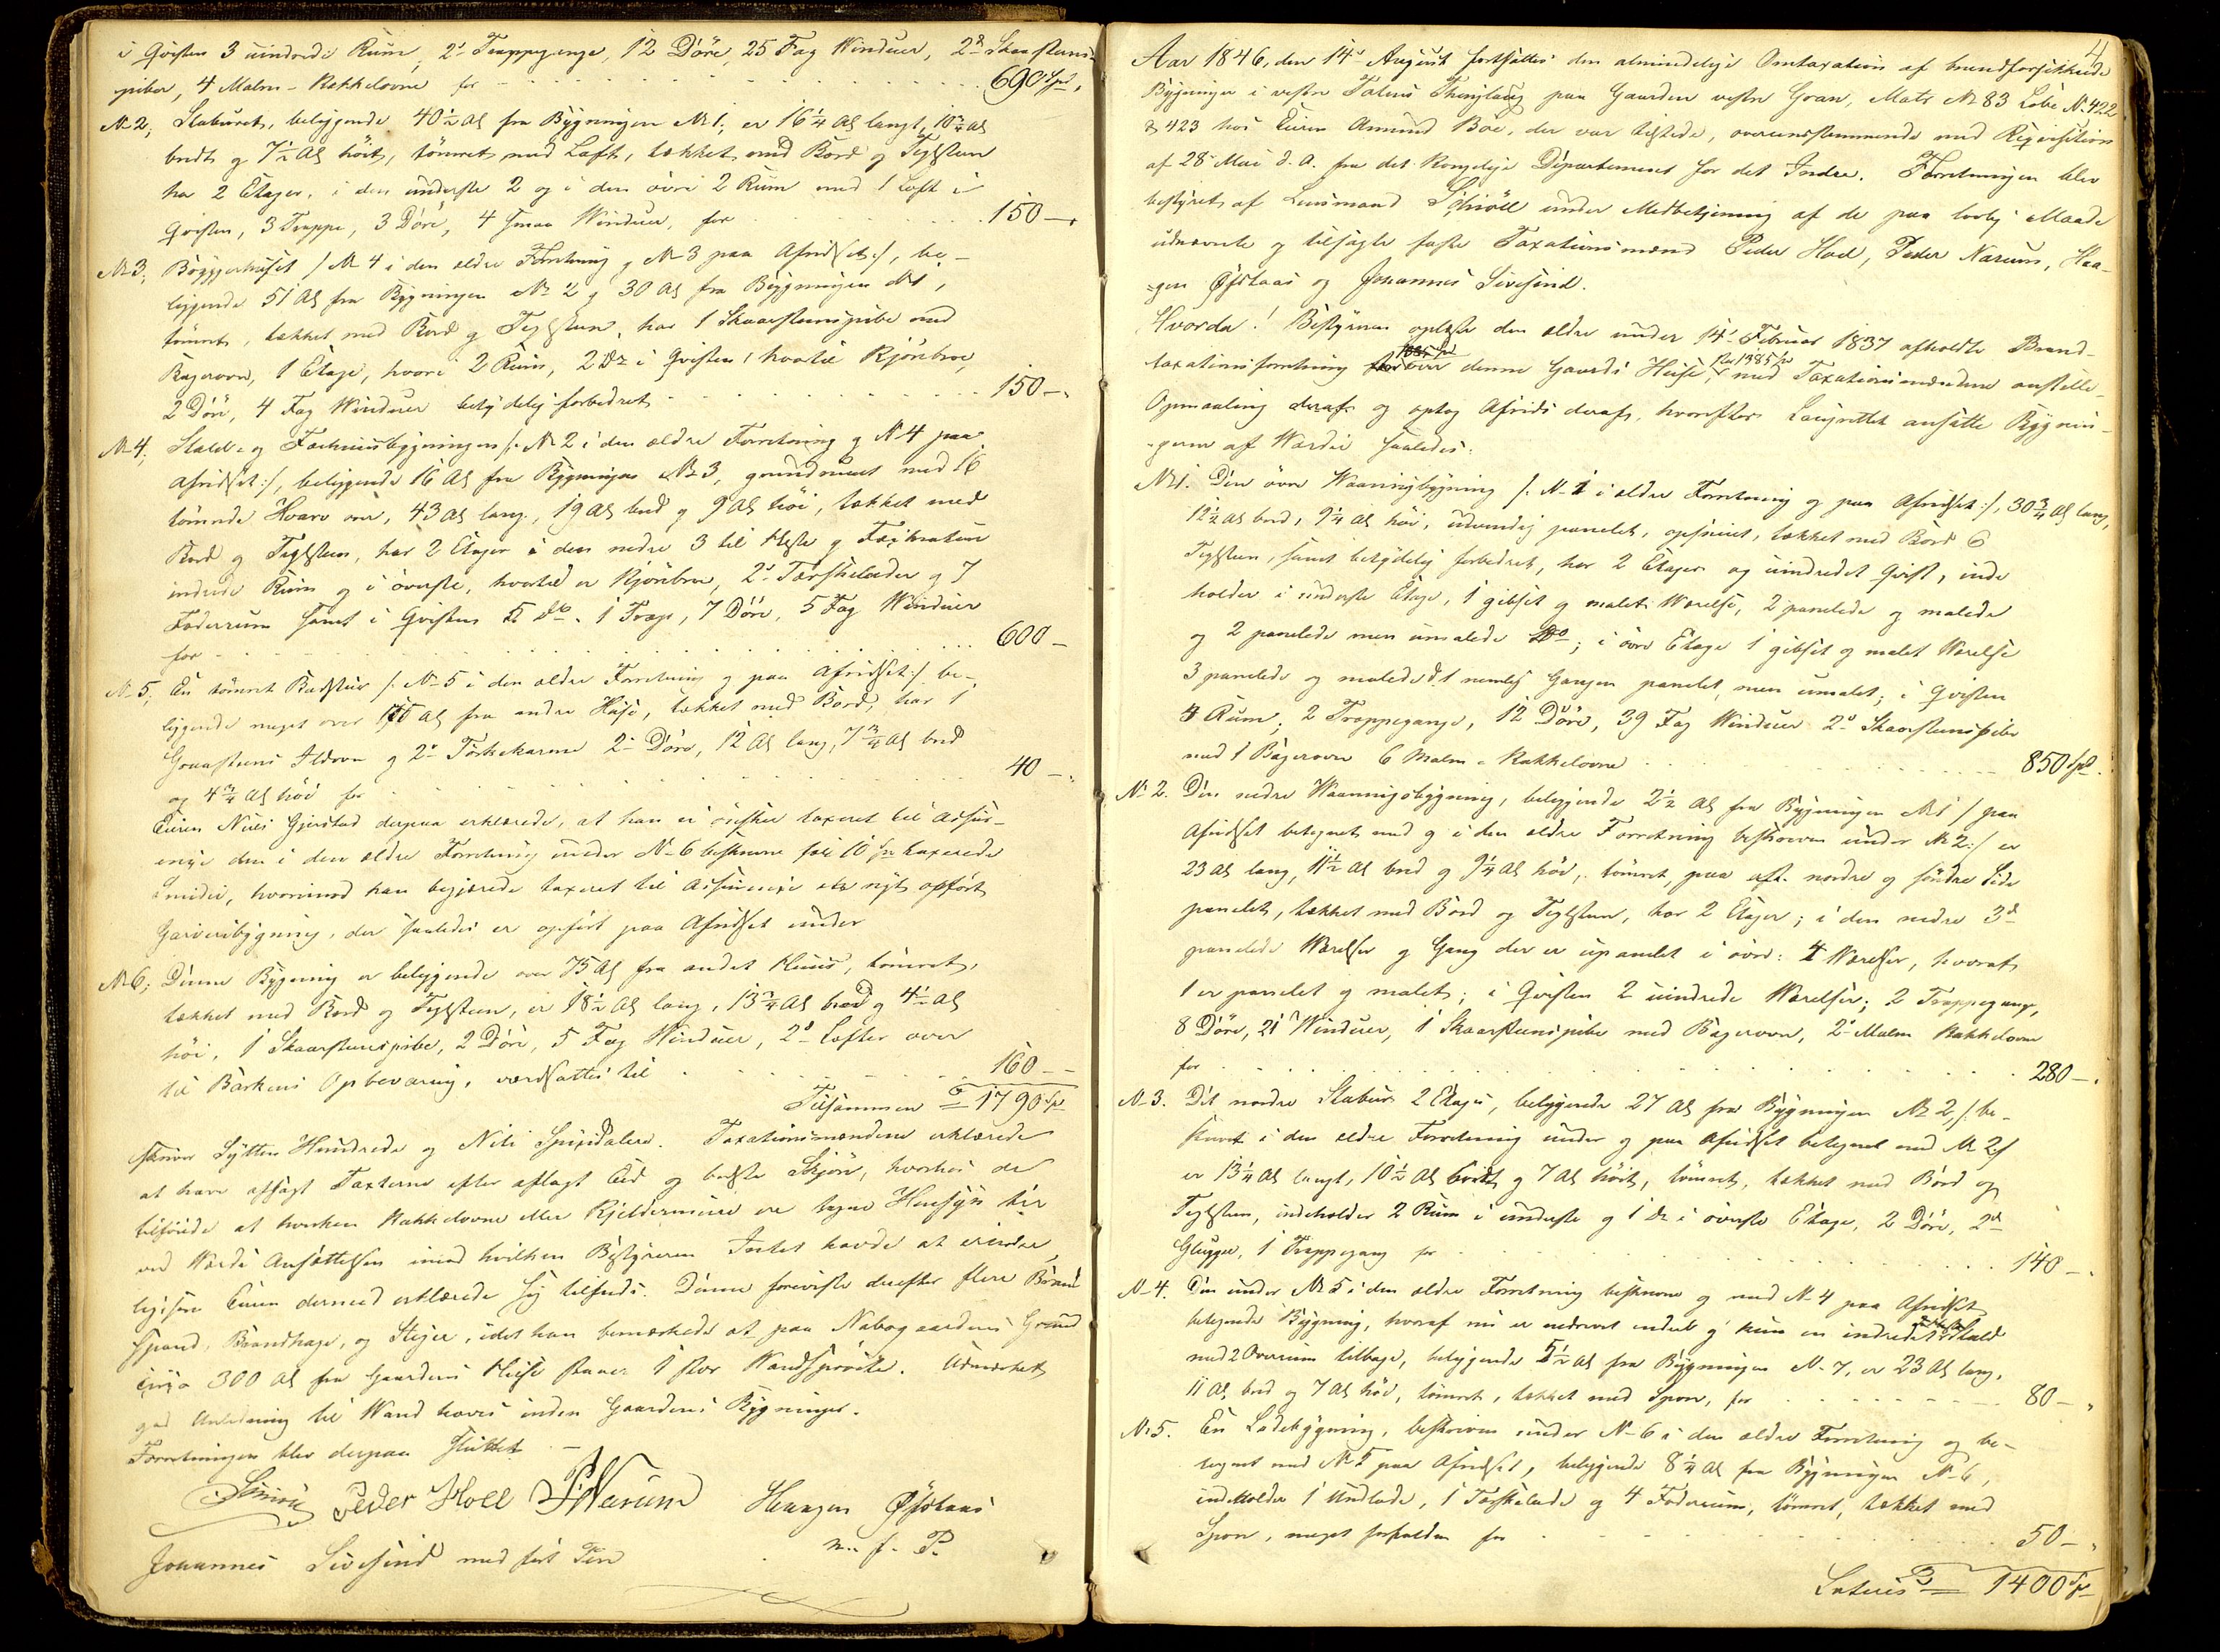 i Qvisten 3 uindrede Rum, 2de Trappegange, 12 Döre, 25 Fag Vinduer, 2de Skaarsteens-
piber, 4 Malm-Kakkelovne for 690 Spd.
No 2, Staburet, beliggende 40½ Al fra Bygningen No 1, er 16¼ Al langt, 10¾ Al
bredt og 7½ Al höit, tömret med Loft, tækket med Bord og Teglsteen
har 2 Etager, i den underste 2 og i den övre 2 Rum med 1 Loft i
Qvisten, 3 Trappe, 3 Döre, 4 smaa Vinduer, for 150 –
No 3, Böggerhuset /: No 4 i den ældre Forretning og No 3 paa Afridset :/, be-
liggende 51 Al fra Bygningen No 2 og 30 Al fra Bygningen No 1,
tömret, tækket med Bord og Teglsteen, har 1 Skaarsteenspibe med
Bagerovn, 1 Etage, hvori 2 Rum, 2 Do i Qvisten, hvortil Kjörebroe,
2 Döre, 4 Fag Vinduer betydelig forbedret 150 –
No 4, Stald- og Fæehuusbygningen /: No 2 i den ældre Forretning og No 4 paa
Afridset :/, beliggende 16 Al fra Bygningen No 3, grundmuret med 16
tömrede Hvarv over, 43 Al lang, 19 Al bred og 9 Al höi, tækket med
Bord og Teglsteen, har 2 Etager i den nedre 3 til Heste og Fækreature
indrede Rum og i överste, hvortil er Kjörebroe, 2de Tærskelader og 7
Foderrum samt i Qvisten 5 do. 1 Trap, 7 Döre, 5 Fag Vinduer
for 600 –
No 5, En tömret Badstue /: No 5 i den ældre Forretning og paa Afridset :/ be-
liggende meget over 100 Al fra andre Huse, tækket med Bord, har 1
Graasteens Ildovn og 2de Törkekarme 2de Döre, 12 Al lang, 7¾ Al bred
og 4¾ Al höi for 40 –
Eieren Niels Gjerstad derpaa erklærede, at han ei önsker taxeret til Assu-
rence den i den ældre Forretning under No 6 beskrevne for 10 Spd taxerede
Smidie, hvorimod han begjærede taxeret til Assurence en nyt opfört
Garveribygning, der saaledes er opfört paa Afridset under
No 6, Denne Bygning er beliggende over 75 Al fra andet Huus, tömret,
tækket med Bord og Teglsteen, er 18½ Al lang, 13¾ Al bred og 4½ Al
höi, 1 Skaarsteenspibe, 2 Döre, 5 Fag Vinduer, 2de Lofter over
til Barkens Opbevaring, værdsattes til 160 –
Tilsammen 1790 Spd
skriver Sytten Hundrede og Niti Speciedalere. Taxationsmændene erklærede
at have afsagt Taxterne efter aflagt Eed og bedste Skjön, hvorhos de
tilföiede at hverken Kakkelovne eller Kjeldermure ere tagne Hensyn til
ved Værdie Ansættelsen imod hvilken Bestyreren Intet havde at erindre
ligesom Eieren dermed erklærede sig tilfreds. Denne foreviste derefter flere Brand
spand, Brandhage, og Stiger, idet han bemærkede at paa Nabogaardens Grund
circa 300 Al fra Gaardens Huse staaer 1 stor Vandspröite. Udmærket
god Anledning til Vand haves inden Gaardens Bygninger.
Forretningen blev derpaa sluttet. –
Schiöll Peder Hoel PNærum Haagen Öfstaas
m. f. P.
Johannes Sivesind med fört Pen
4
Aar 1846, den 14de August fortsattes den almindelige Omtaxation af brandforsikkrede
Bygninger i vestre Totens Thinglaug paa Gaarden vestre Gran, Matr No 83 Löbe No 422
& 423 hos Eieren Amund Böe, der var tilstede, overensstemmende med Reqvisition
af 28 Mai d. A. fra det Kongelige Departement for det Indre. Forretningen blev
bestyret af Lensmand Schiöll under Medbetjening af de paa lovlig Maade
udnævnte og tilsagte faste Taxationsmænd Peder Hoel, Peder Nærum, Haa-
gen Öfstaas og Johannes Sivesind.
Hvorda! Bestyreren oplæste den ældre under 14de Februar 1837 afholdte Brand-
taxationsforretning over denne Gaards Huse, stor 1385 Spd med Taxationsmændene anstille-
Opmaaling deraf og optog Afrids deraf, hvorefter Laugrettet ansatte Bygnin-
gerne af Værdie saaledes:
No 1. Den övre Vaaningsbygning /: No 1 i ældre Forretning og paa Afridset :/, 30¾ Al lang,
12½ Al bred, 9¼ Al höi, udvendig panelet, opsminet, tækket med Bord &
Teglsteen, samt betydelig forbedret, har 2 Etager og uindredet Qvist, inde
holder i underste Etage, 1 gibset og malet Værelse, 2 panelede og malede
og 2 panelede men umalede Do; i övre Etage 1 gibset og malet Værelse
3 panelede og malede & 1 nemlig Gangen panelet, men umalet; i Qvisten
4 Rum; 2 Trappegange, 12 Döre, 39 Fag Vinduer 2de Skaarsteenspiber
med 1 Bagerovn 6 Malm-Kakkelovne 850 Spd.
No 2. Den nedre Vaaningsbygning, beliggende 2½ Al fra Bygningen No 1 / paa
Afridset betegnet med og i den ældre Forretning beskreven under No 2 :/ er
23 Al lang, 11½ Al bred og 9¼ Al höi, tömret, paa öst- nordre og söndre Side
panelet, tækket med Bord og Teglsteen, har 2 Etager; i den nedre 3de
panelede Værelser og Gang der er upanelet i övre: 4 Værelser, hvoraf
1 er panelet og malet; i Qvisten 2 uindrede Værelser; 2 Trappegange,
8 Döre, 21 Vinduer, 1 Skaarsteenspibe med Bagerovn, 2de Malm Kakkelovne
for 280 –
No 3. Det nordre Stabur 2 Etages, beliggende 27 Al fra Bygningen No 2, /: be-
skrevet i den ældre Forretning under og paa Afridset betegnet med No 2 :/
er 13¼ Al langt, 10½ Al bredt og 7 Al höit, tömret, tækket med Bord og
Teglsteen, indeholder 2 Rum i underste og 1 do i överste Etage, 2 Döre, 2de
Glugger, 1 Trappegang for 140 –
No 4. Den under No 5 i den ældre Forretning beskrevne og med No 4 paa Afridset
betegnede Bygning, hvoraf nu er nedrevet endeel og kun en indredet Stald
med 2 Overrum tilbage, beliggende 5½ Al fra Bygningen No 7, er 23 Al lang,
11 Al bred og 7 Al höi, tömret, tækket med Spon, for 80 –
No 5. En Ladebygning, beskreven under No 6 i den ældre Forretning og be-
tegnet med No 5 paa Afridset, beliggende 8¼ Al fra Bygningen No 6,
indeholder 1 Lade, 1 Tærskelade og 4 Foderrum, tömret, tækket med
Spon, meget forfalden for 50 –
Lateris 1400 Spd